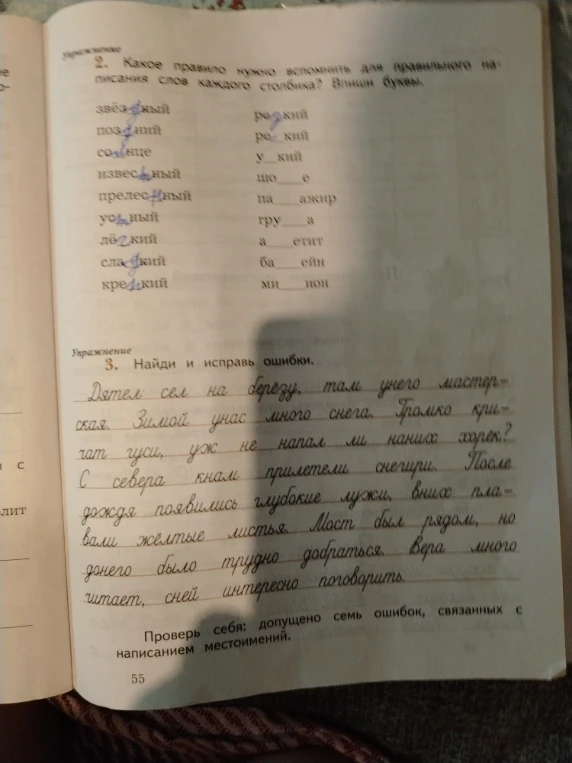 Упражнение
2. Какое правило нужно вспомнить для правильного на-
писания слов каждого столбика? Впиши буквы.
звёздный
поздний
солнце
известный
прелестный
устный
лёгкий
сладкий
кре кий
ре кий
ре_кий
у_кий
шо__е
па__ажир
гру__а
а__етит
ба__ейн
ми__ион
Упражнение
3. Найди и исправь ошибки.
Дятел сел на берёзу, там унего мастер-
ская. Зимой унас много снега. Громко кри-
чат гуси, уж не напал ли наних хорёк?
С севера кнам прилетели снегири. После
дождя появились глубокие лужи, вних пла-
вали жёлтые листья. Мост был рядом, но
донего было трудно добраться. Вера много
читает, сней интересно поговорить.
Проверь себя: допущено семь ошибок, связанных с
написанием местоимений.
55
и с
лит